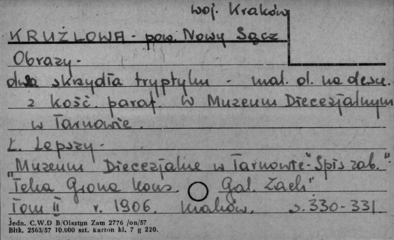 woj. Kraków
KRUŻLOWA - pow. Nowy Sącz
Obrazy -
dwa skrzydła tryptyku - mal. ol. na desce.
z kość. paraf. w Muzeum Diecezjalnym
w Tarnowie.
Ł. Lepszy -
"Muzeum Diecezjalne w Tarnowie" Spis zab."
"Teka Grona Kons. Gal. Zach"
Tom II r. 1906. Kraków. s. 330-331
Jedn. C.W.D B/Olsztyn Zam 2776 /on/57
Błtk. 2563/57 10.000 szt. karton kl. 7 g 220.